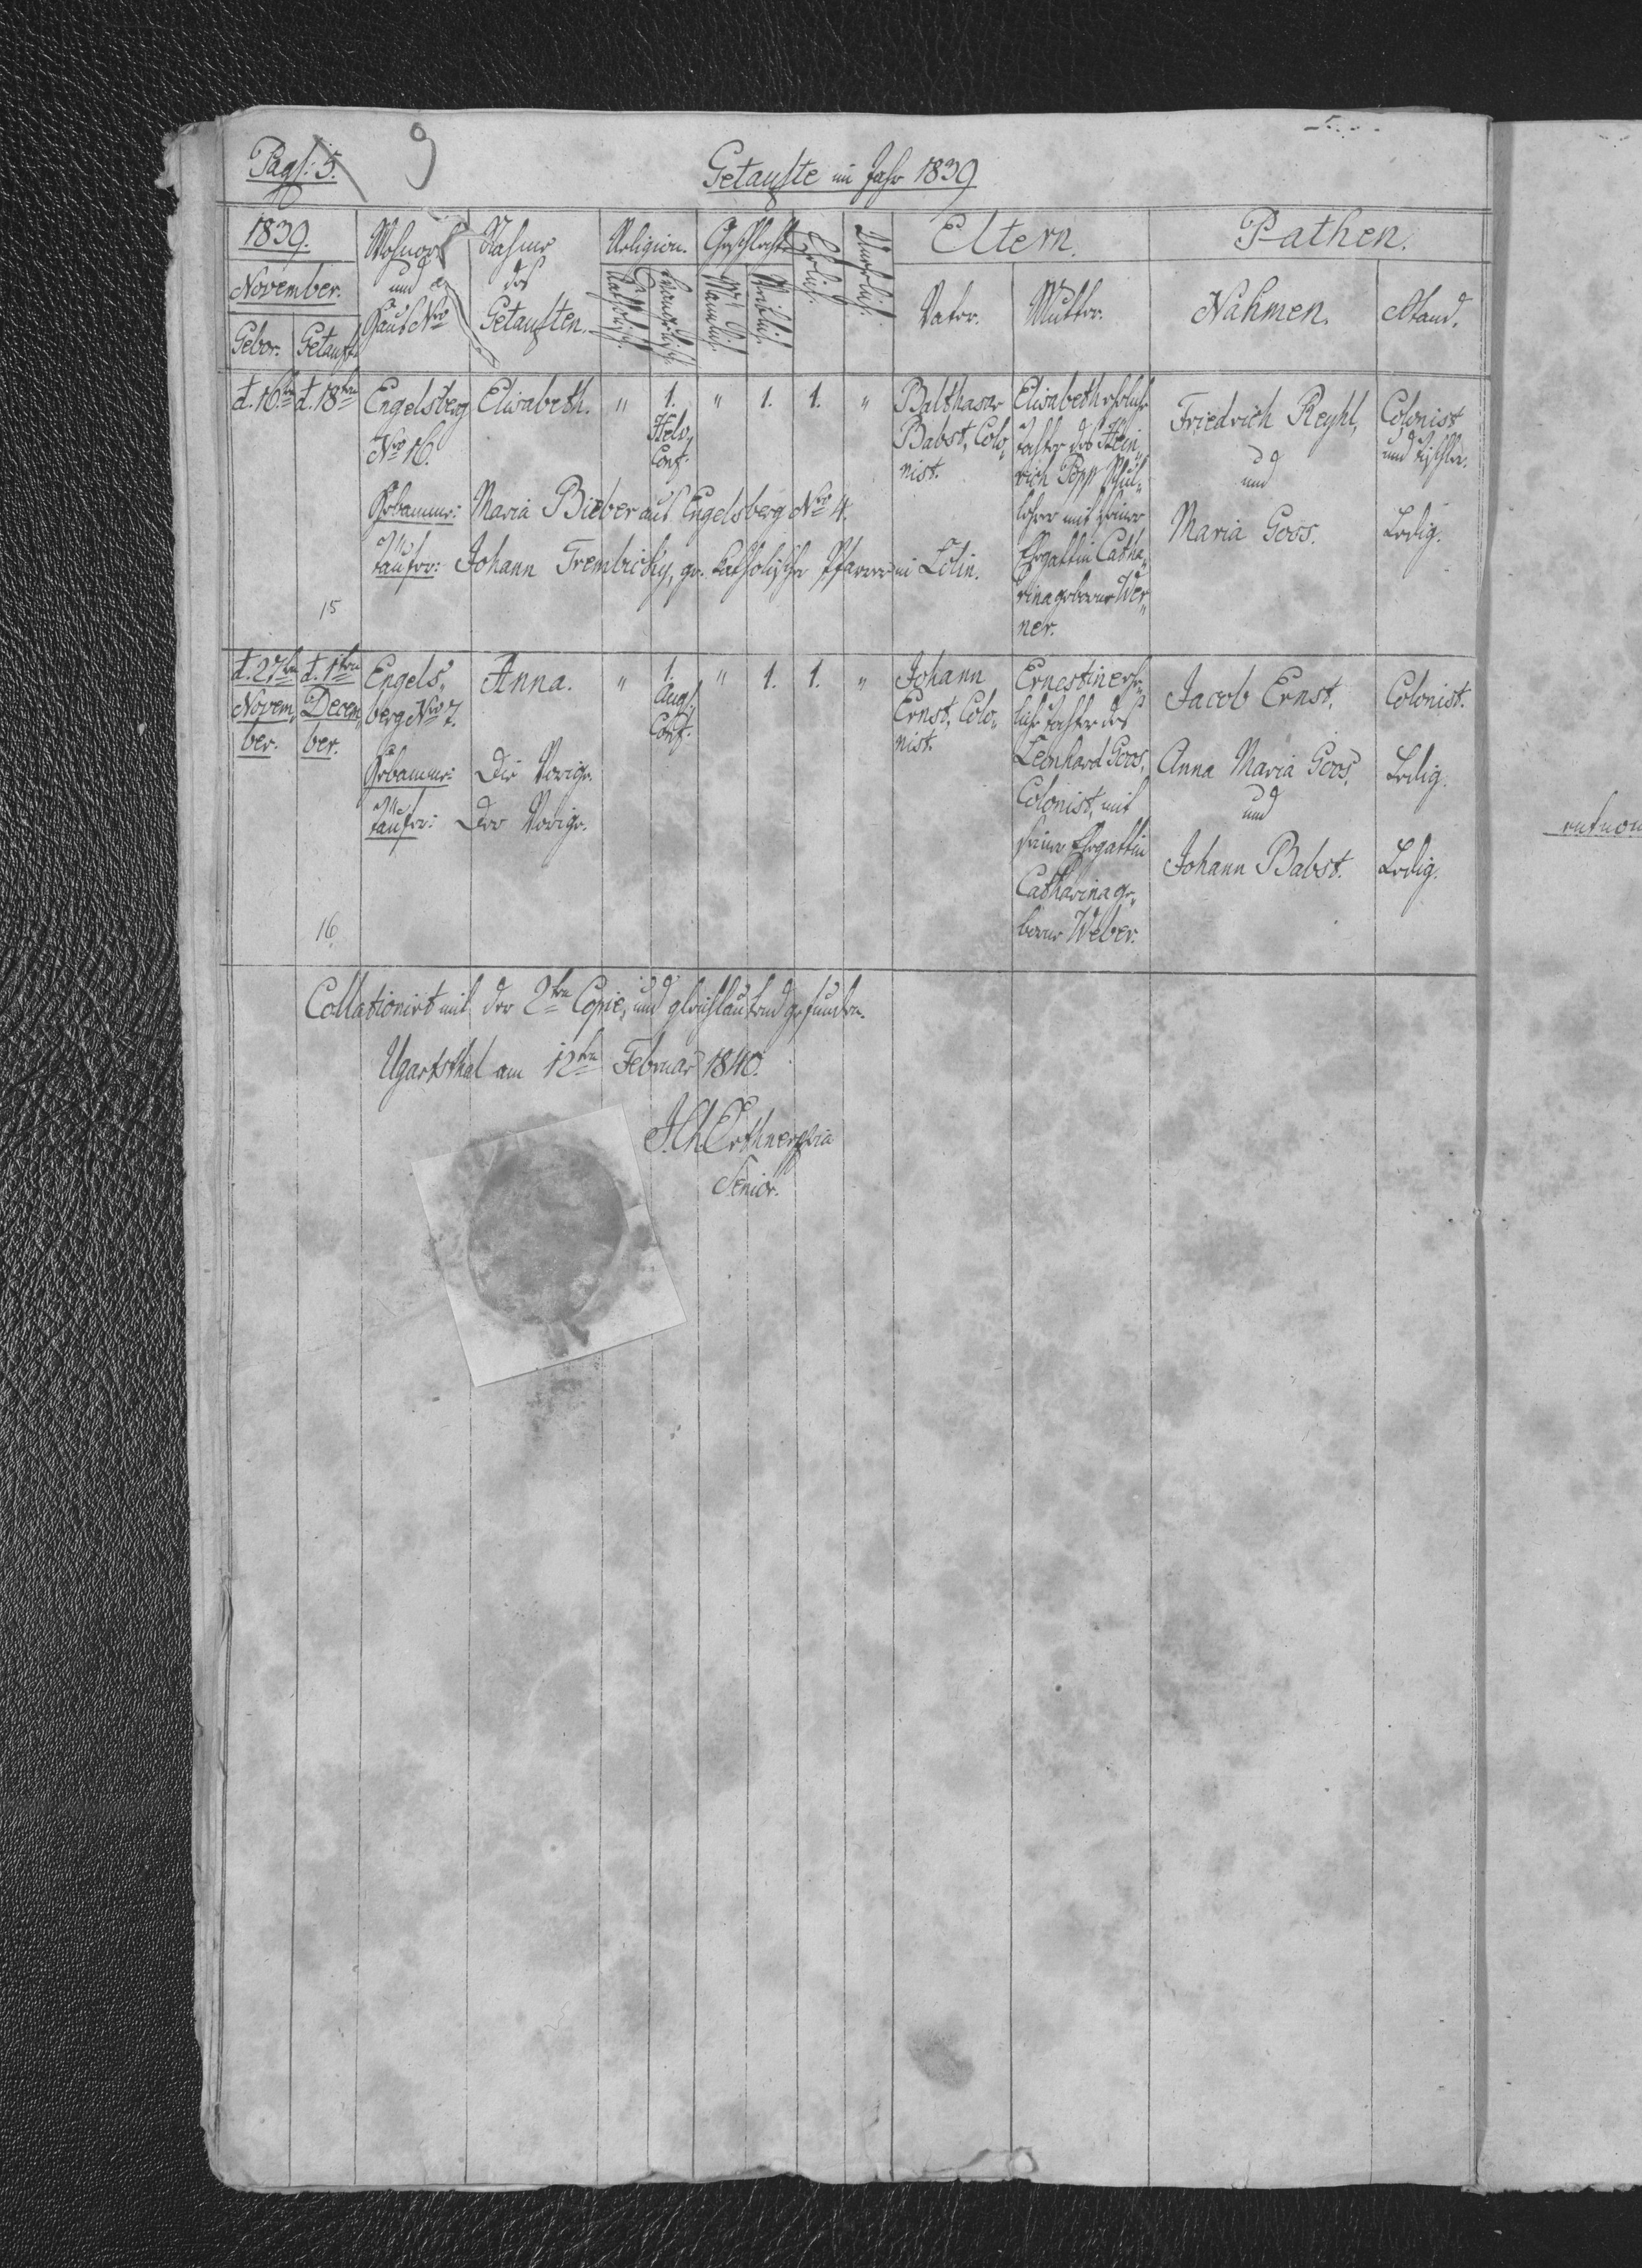 Pag: 5.
9
Getaufte im Jahr 1839
1839.
November.
Gebor. Getauft.
Wohnort und Haus Nro
Nahme des Getauften.
Religion.
Katholisch. Evangelisch.
Geschlecht.
Männlich. Weiblich.
Ehelich.
Unehelich.
Eltern.
Vater. Mutter.
Pathen.
Nahmen. Stand.
d. 16ten d. 18ten Engelsberg Elisabeth. " 1. " 1. 1. "
Nro 16.
Helv.
Conf.
Balthasar
Babst, Colo„
nist.
Elisabeth eheliche
Tochter des Hein„
rich Popp Schul„
lehrer mit seiner
Ehegattin Catha„
rina geborne Wer„
ner.
Friedrich Reyhl,
und
Maria Goos.
Colonist
und Tischler.
Ledig.
Hebamme: Maria Bieber aus Engelsberg Nro 4.
Täufer: Johann Trembicky, gr. katholischer Pfarrer in Lolin.
15
d. 27ten d. 1ten Engels„ Anna. " 1. " 1. 1. "
Novem„ Decem„ berg Nro 7.
ber. ber.
Aug.
Conf.
Johann
Ernst, Colo„
nist.
Ernestine ehe„
liche Tochter des
Leonhard Goos,
Colonist, mit
seiner Ehegattin
Catharina ge„
borne Weber.
Jacob Ernst,
Anna Maria Goos,
und
Johann Babst.
Colonist.
Ledig.
Ledig.
Hebamme: Die Vorige.
Täufer: Der Vorige.
16
Collationirt mit der 2ten Copie, und gleichlautend gefunden.
Ugartsthal am 12ten Februar 1840.
Senior.